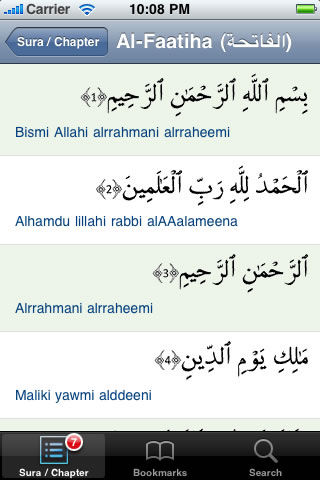 Carrier 10:08 PM
Sura / Chapter Al-Faatiha (الفاتحة)
بِسْمِ ٱللَّهِ ٱلرَّحْمَٰنِ ٱلرَّحِيمِ ﴿1﴾
Bismi Allahi alrrahmani alrraheemi
ٱلْحَمْدُ لِلَّهِ رَبِّ ٱلْعَٰلَمِينَ ﴿2﴾
Alhamdu lillahi rabbi alAAalameena
ٱلرَّحْمَٰنِ ٱلرَّحِيمِ ﴿3﴾
Alrrahmani alrraheemi
مَٰلِكِ يَوْمِ ٱلدِّينِ ﴿4﴾
Maliki yawmi alddeeni
7
Sura / Chapter Bookmarks Search